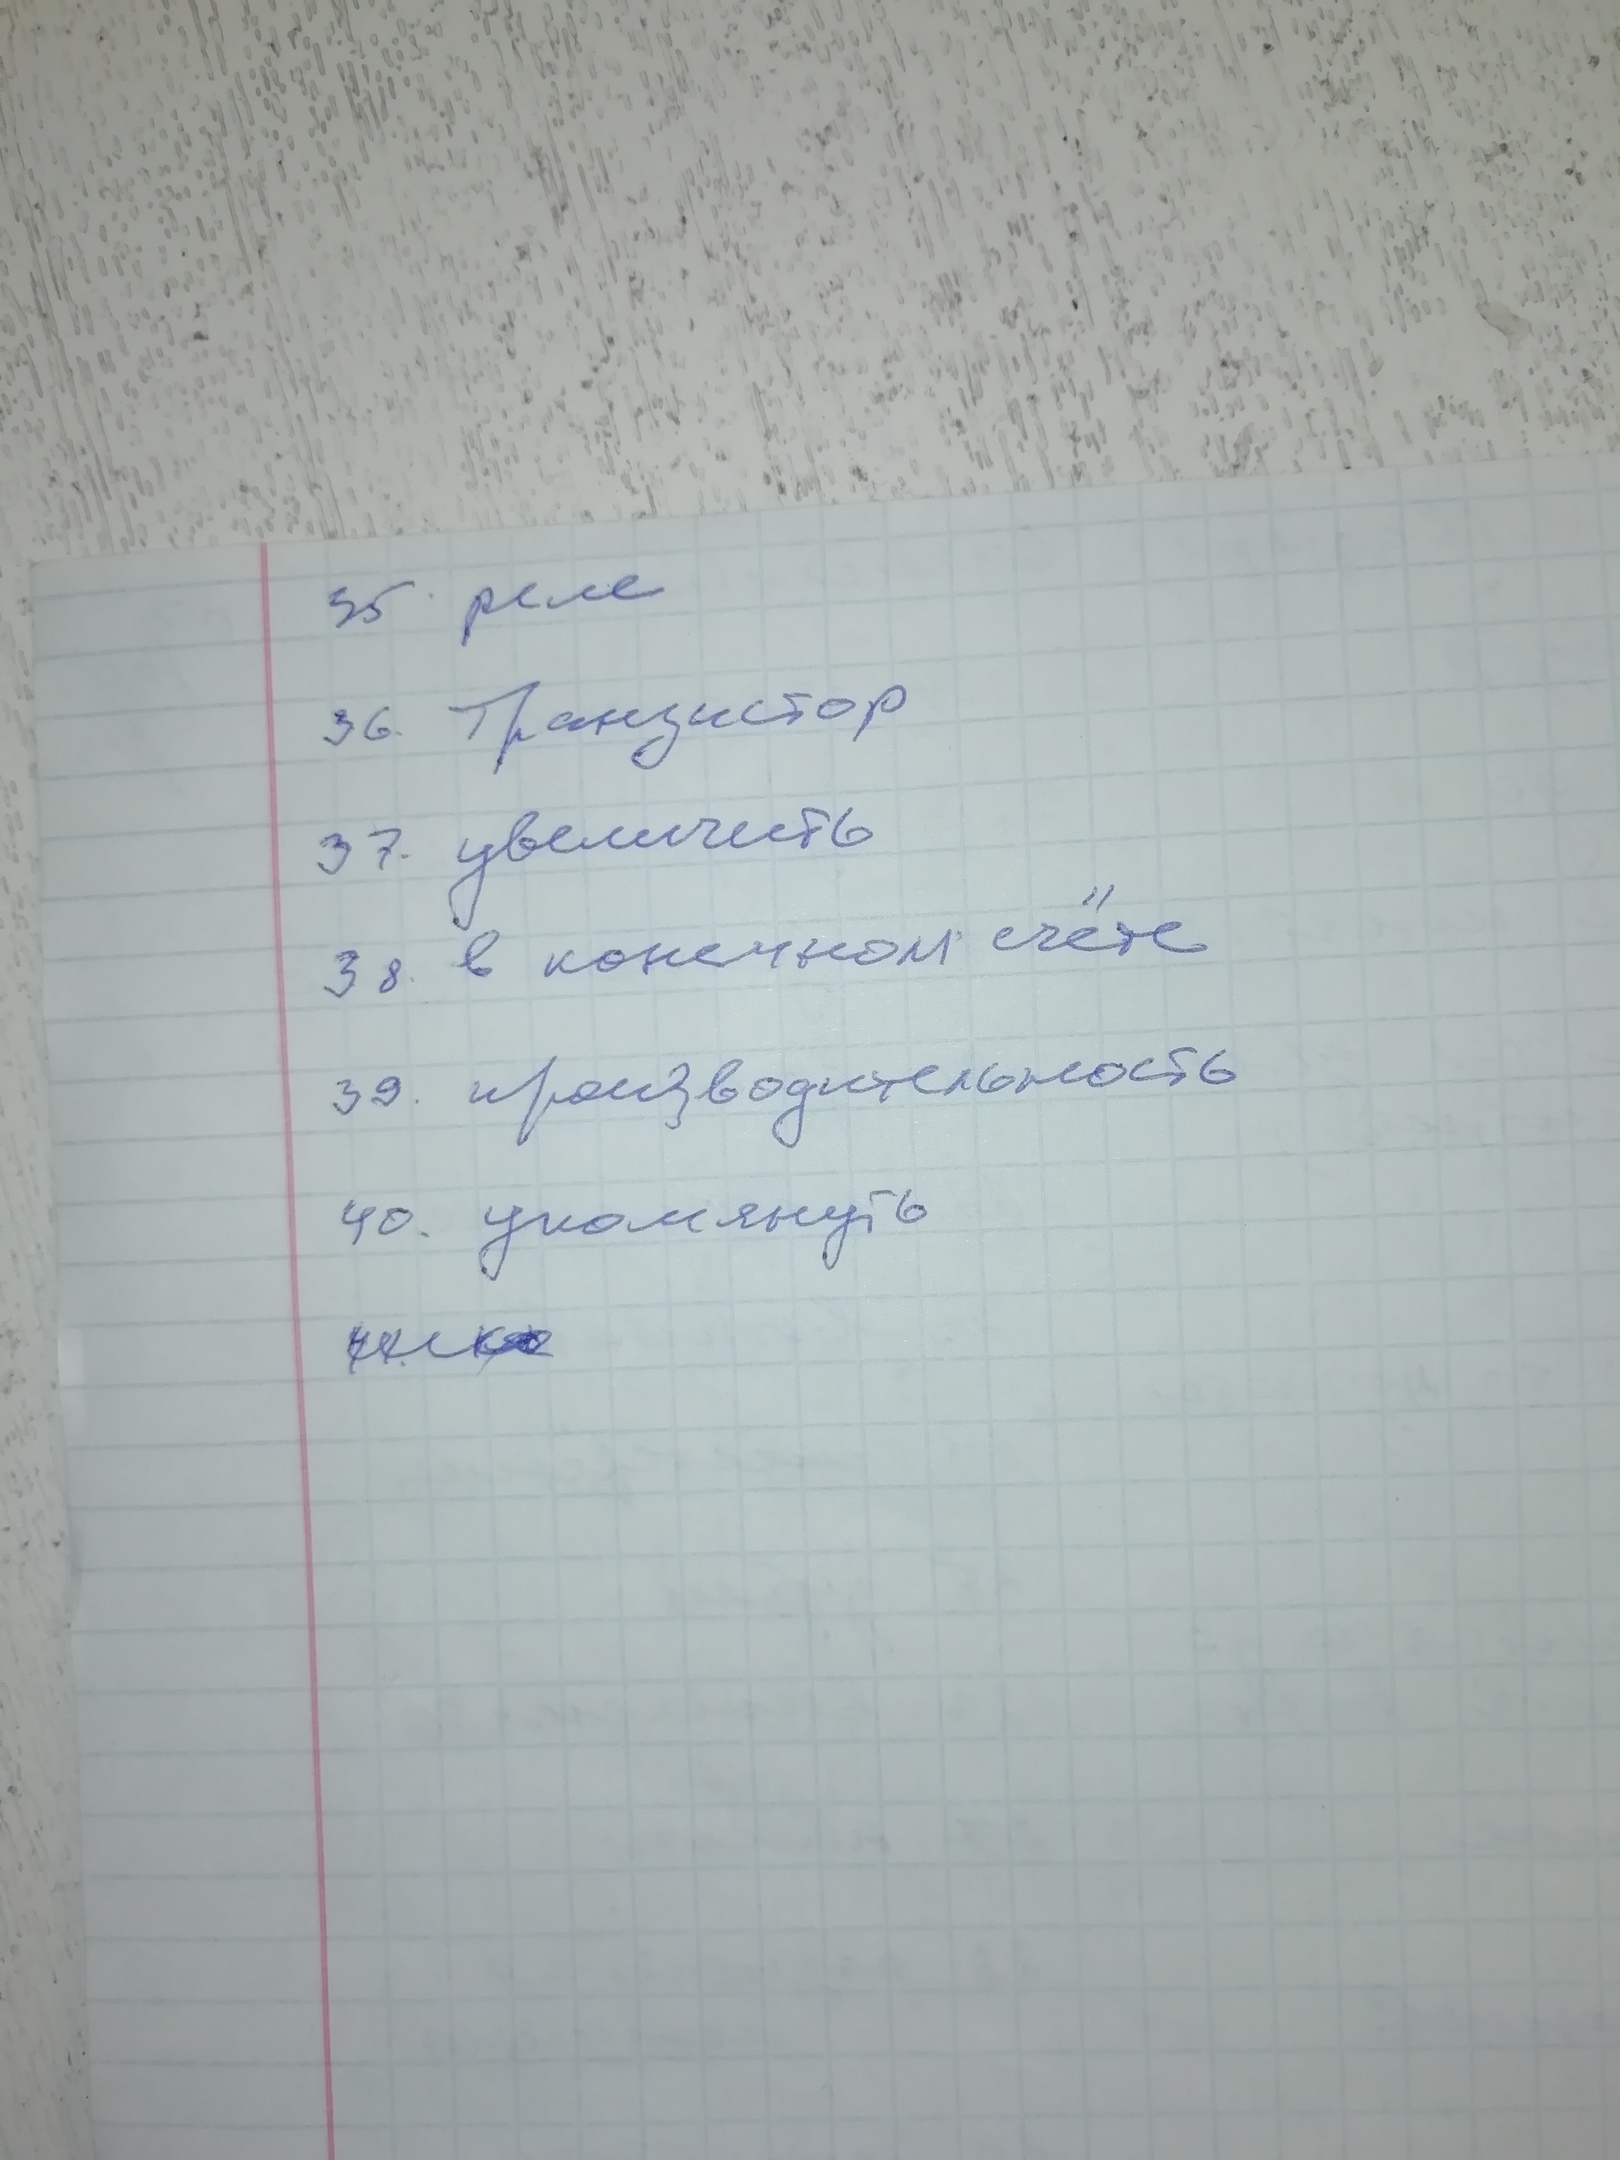 35. реле
36. Транзистор
37. увеличить
38. в конечном счёте
39. производительность
40. упомянуть